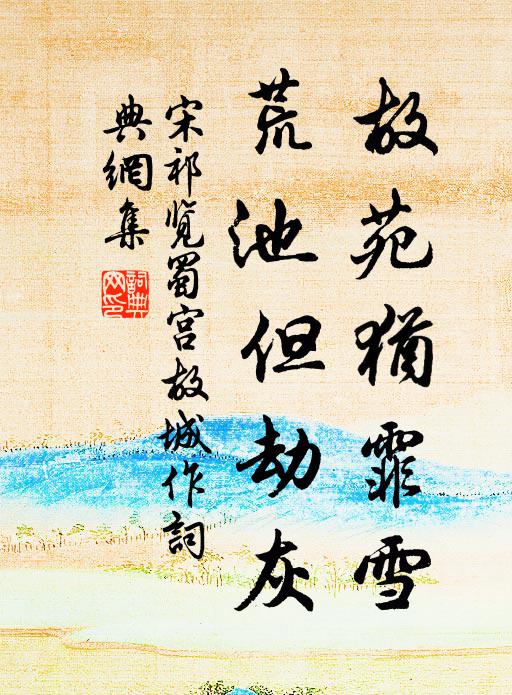 故苑犹霏雪
荒池但劫灰
宋祁览蜀宫故城作詞
典網集
詞典網印